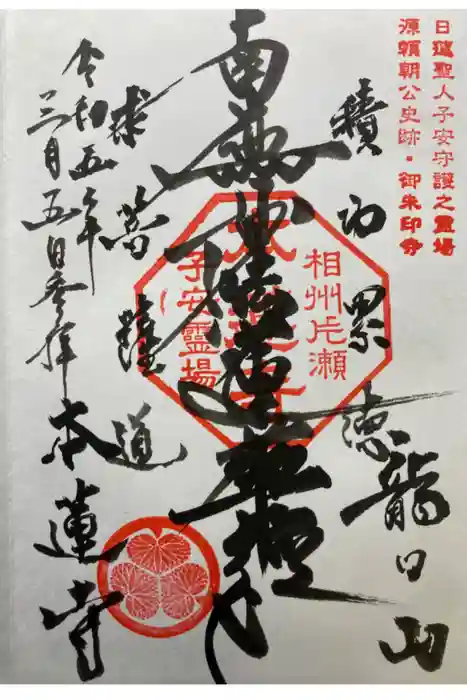 日蓮聖人子安守護之霊場
源頼朝公史跡・御朱印寺
積功累徳
龍口山
南無妙法蓮華経
相州片瀬
本蓮寺
子安霊場
求菩薩道
本蓮寺
令和五年
三月五日参拝